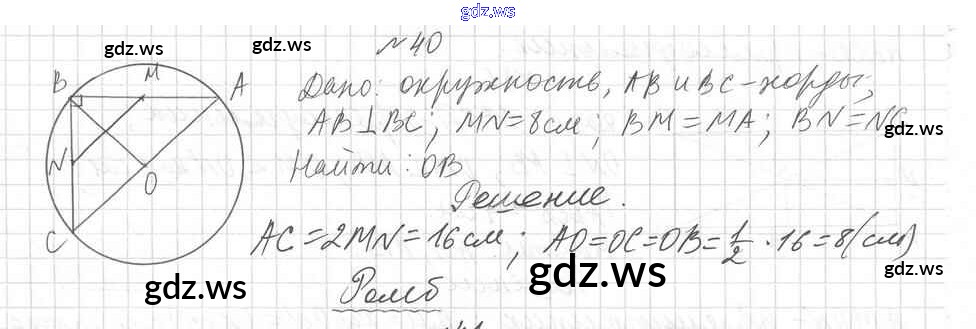 gdz.ws
№40
gdz.ws gdz.ws
B M A
N O C
Дано: окружность, AB и BC – хорды;
AB⊥BC; MN=8см; BM=MA; BN=NC
gdz.ws
Найти: OB
Решение.
AC=2MN=16см; AO=OC=OB=1/2·16=8(см)
gdz.ws gdz.ws gdz.ws
Ромб